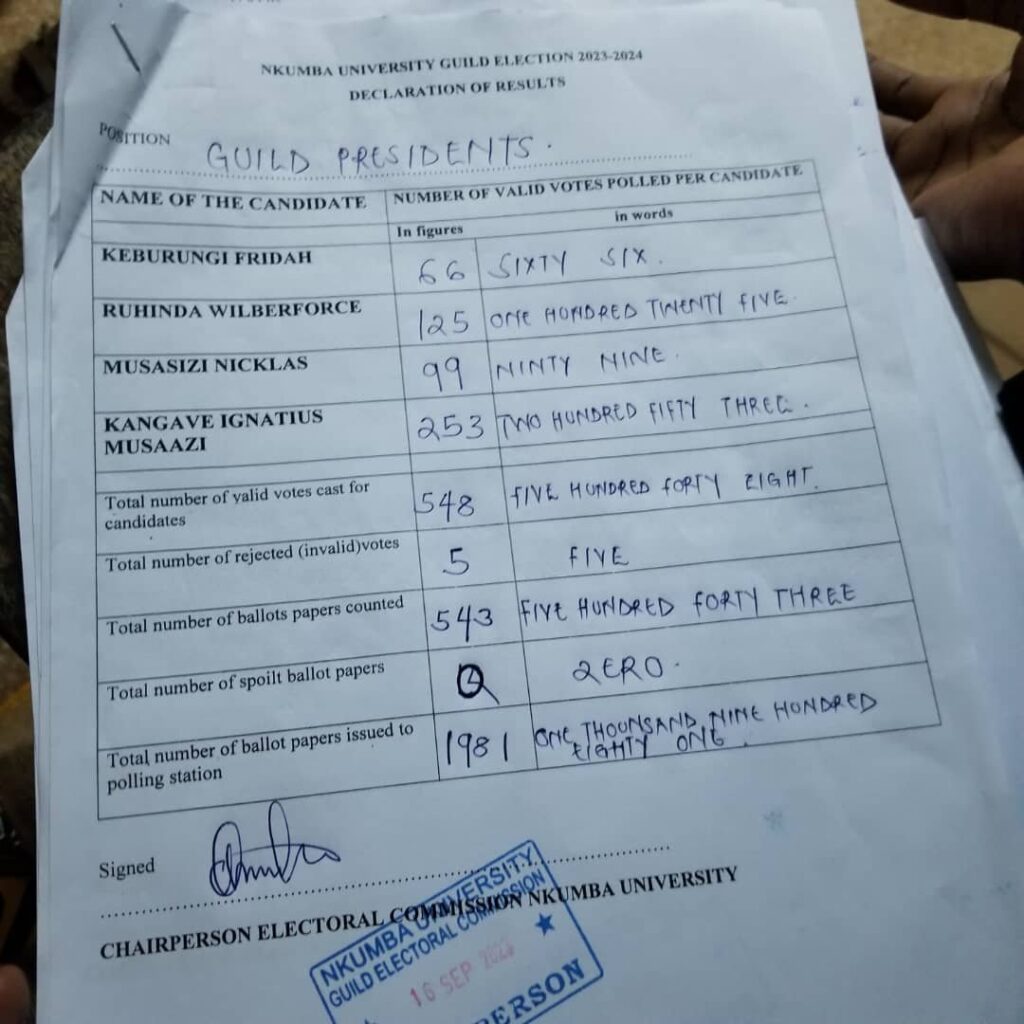 NKUMBA UNIVERSITY GUILD ELECTION 2023-2024
DECLARATION OF RESULTS
POSITION GUILD PRESIDENTS.
NAME OF THE CANDIDATE NUMBER OF VALID VOTES POLLED PER CANDIDATE
In figures in words
KEBURUNGI FRIDAH 66 SIXTY SIX.
RUHINDA WILBERFORCE 125 ONE HUNDRED TWENTY FIVE.
MUSASIZI NICKLAS 99 NINTY NINE.
KANGAVE IGNATIUS
MUSAAZI 253 TWO HUNDRED FIFTY THREE.
Total number of valid votes cast for
candidates 548 FIVE HUNDRED FORTY EIGHT.
Total number of rejected (invalid)votes 5 FIVE
Total number of ballots papers counted 543 FIVE HUNDRED FORTY THREE
Total number of spoilt ballot papers 0 ZERO.
Total number of ballot papers issued to
polling station 1981 ONE THOUNSAND NINE HUNDRED
EIGHTY ONE.
Signed
CHAIRPERSON ELECTORAL COMMISSION NKUMBA UNIVERSITY
NKUMBA UNIVERSITY
GUILD ELECTORAL COMMISSION
16 SEP
PERSON